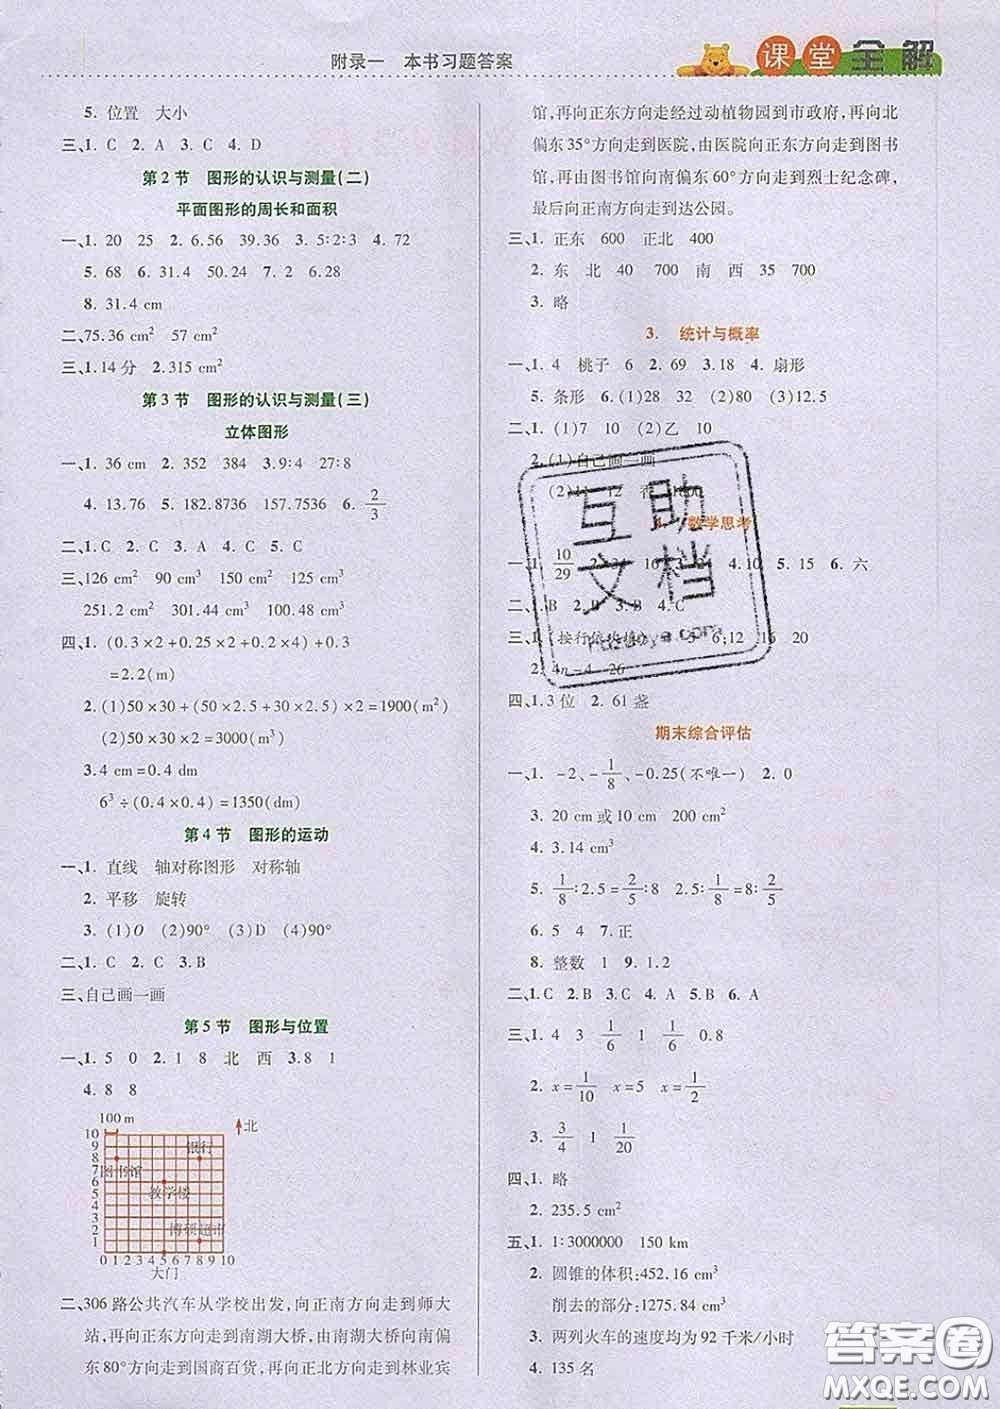 附录一 本书习题答案
课堂全解
5. 位置 大小
三、1. C 2. A 3. C 4. D
第2节 图形的认识与测量(二)
平面图形的周长和面积
一、1. 20 25 2. 6.56 39.36 3. 5∶2∶3 4. 72
5. 68 6. 31.4 50.24 7. 2 6.28
8. 31.4 cm
二、75.36 cm² 57 cm²
三、1. 14分 2. 315 cm²
第3节 图形的认识与测量(三)
立体图形
一、1. 36 cm 2. 352 384 3. 9∶4 27∶8
4. 13.76 5. 182.8736 157.7536 6. 2/3
二、1. C 2. A 3. C 4. C 5. C
三、126 cm² 90 cm³ 150 cm² 125 cm³
251.2 cm² 301.44 cm³ 100.48 cm³
四、1. (0.3×2+0.25×2+0.2×2)+0.3
=2.2(m)
2. (1)50×30+(50×2.5+30×2.5)×2=1900(m²)
(2)50×30×2=3000(m³)
3. 4 cm=0.4 dm
6³÷(0.4×0.4)=1350(dm)
第4节 图形的运动
一、1. 直线 轴对称图形 对称轴
2. 平移 旋转
3. (1)O (2)90° (3)D (4)90°
二、1. C 2. C 3. B
三、自己画一画
第5节 图形与位置
一、1. 5 0 2. 1 8 北 西 3. 8 1
4. 8 8
100 m
北
10
9
8
7
6
5
4
3
2
1
银行
图书馆
教学楼
博硕超市
0 1 2 3 4 5 6 7 8 9 10
大门
二、306路公共汽车从学校出发,向正南方向走到师大
站,再向正东方向走到南湖大桥,由南湖大桥向南偏
东80°方向走到国商百货,再向正北方向走到林业宾
馆,再向正东方向走经过动植物园到市政府,再向北
偏东35°方向走到医院,由医院向正东方向走到图书
馆,再由图书馆向南偏东60°方向走到烈士纪念碑,
最后向正南方向走到达公园。
三、1. 正东 600 正北 400
2. 东 北 40 700 南 西 35 700
3. 略
3. 统计与概率
一、1. 4 桃子 6 2. 69 3. 18 4. 扇形
5. 条形 6. (1)28 32 (2)80 (3)12.5
二、1. (1)7 10 (2)乙 10
2. (1)自己画一画
(2)11 12
数学思考
一、1. 10/29 4. 10 5. 15 6. 六
二、1. B 2. B 3. B 4. C
三、1. 5 6;12 15 20
2. 4n-4 26
四、1. 3位 2. 61盏
期末综合评估
一、1. -2、-1/8、-0.25(不唯一) 2. 0
3. 20 cm或10 cm 200 cm²
4. 3.14 cm³
5. 1/8∶2.5=2/5∶8 2.5∶1/8=8∶2/5
6. 5 4 7. 正
8. 整数 1 9. 1.2
二、1. C 2. B 3. C 4. A 5. B 6. A
三、1. 4 3 1/6 1 1/6 0.8
2. x=1/10 x=5 x=1/2
3. 3/4 1 1/20
四、1. 略
2. 235.5 cm³
五、1. 1∶3000000 150 km
2. 圆锥的体积:452.16 cm³
削去的部分:1275.84 cm³
3. 两列火车的速度均为92千米/小时
4. 135名
互助文档
答案圈
MXQE.COM